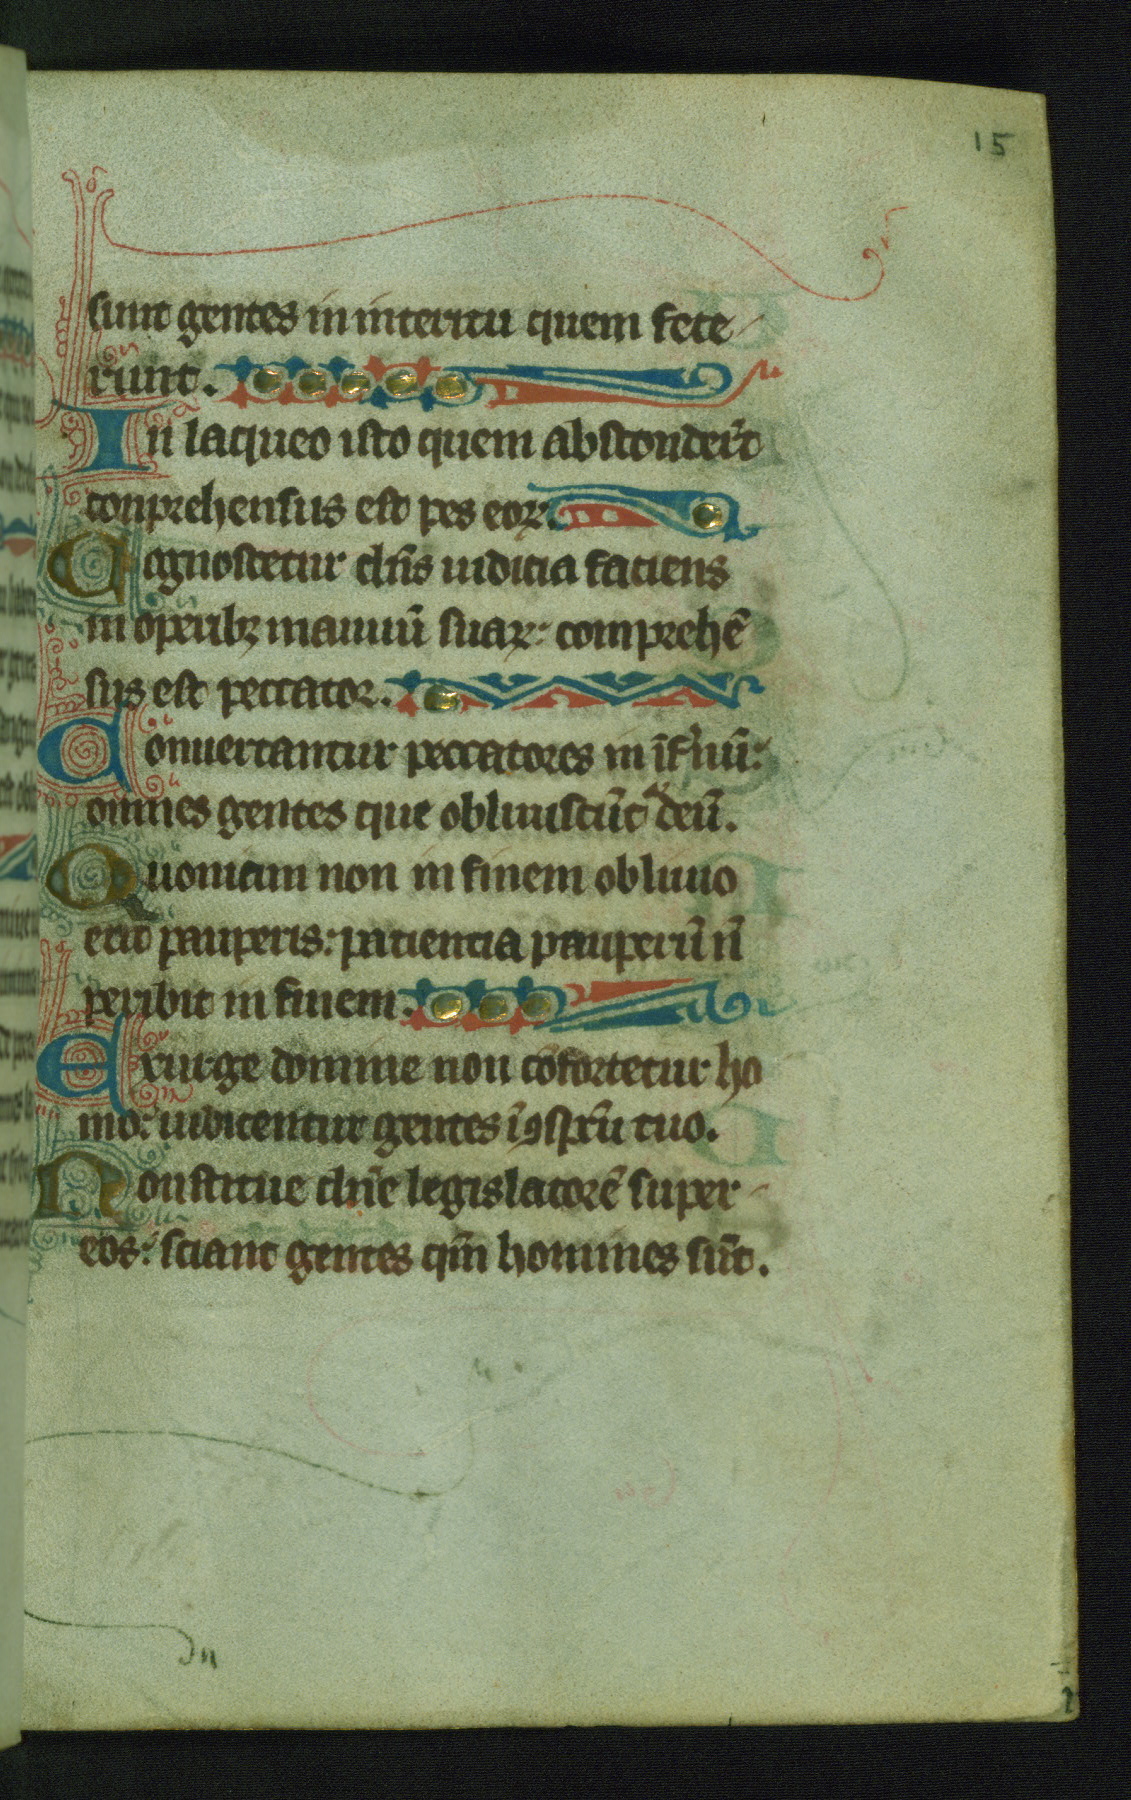 15
sunt gentes in interitu quem fece
runt.
In laqueo isto quem absconder̄t
conprehensus est pes eoꝝ.
Cognoscetur dn̄s iudicia faciens
in operibꝫ manuū suaꝝ: comprehē
sus est peccator.
Conuertantur peccatores in īfʼnū:
omnes gentes que obliuiscūtᷣ deū.
Quoniam non in finem obliuio
erit pauperis: paciencia pauperū n̄
peribit in finem.
Exurge domine non cōfortetur ho
mo: iudicentur gentes ī ꝯspc̄u tuo.
Constitue dn̄e legislatorē super
eos: sciant gentes qm̄ homines sūt.